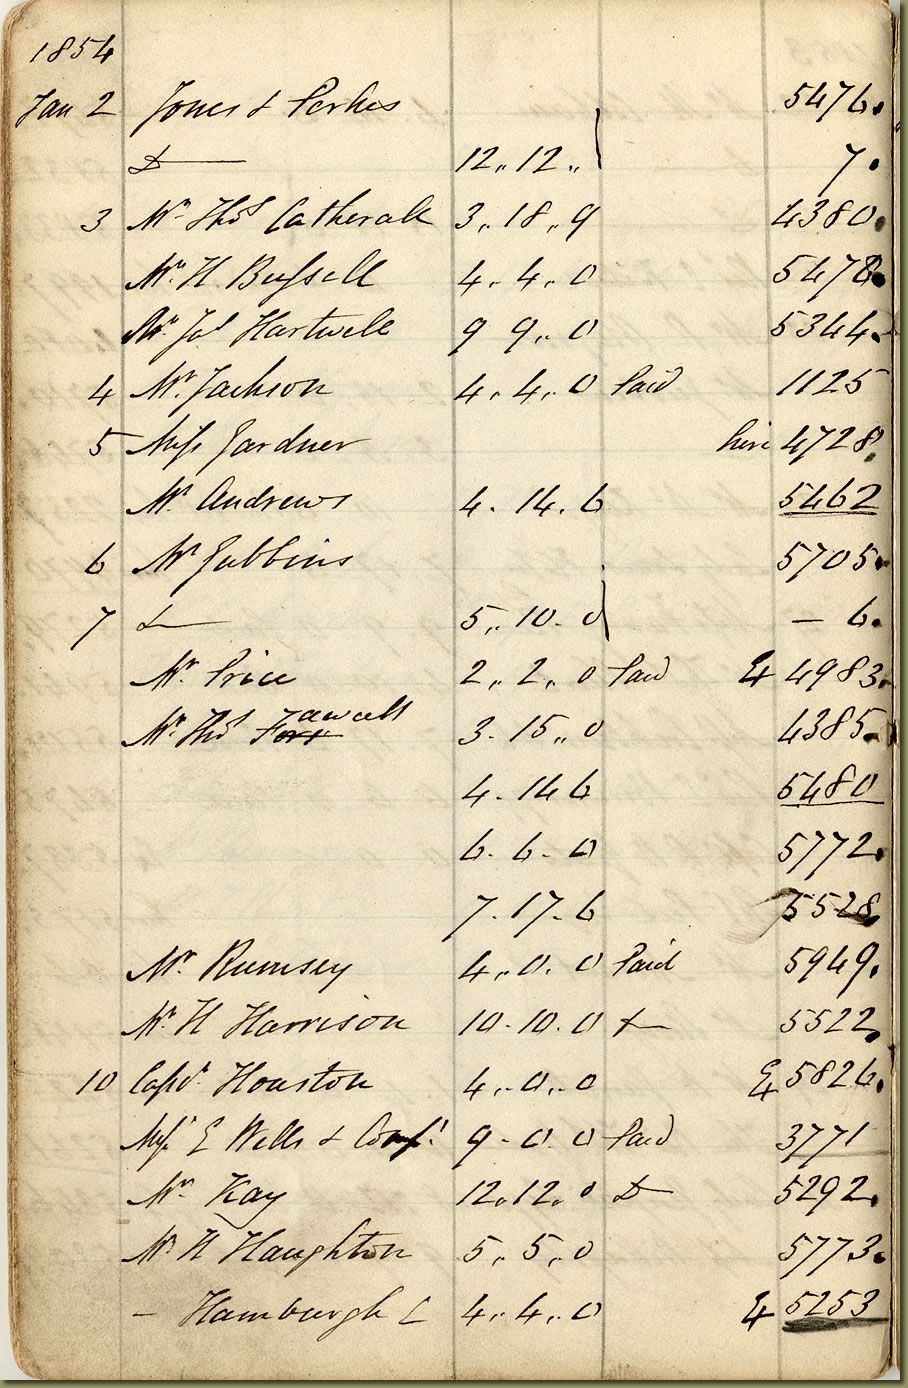 1854
Jan 2 Jones & Perkes 5476.
Do 12,, 12,, 7.
3 Mr. Thos Catherall 3,, 18,, 9 4380.
Mr. H. Bussell 4,, 4,, 0 5478.
Mr. Jos Hartwell 9 9,, 0 5344.
4 Mr. Jackson 4,, 4,, 0 Paid 1125
5 Miss Gardner hire 4728.
Mr. Andrews 4. 14. 6 5462
6 Mr Gubbins 5705.
7 Do 5,, 10. 0 – 6.
Mr. Price 2,, 2,, 0 Paid 4983.
Mr. Thos Fawcett 3. 15,, 0 4385.
4. 14 6 5480
6. 6. 0 5772.
7. 17. 6 5528.
Mr. Rumsey 4,, 0. 0 Paid 5949.
Mr. H Harrison 10. 10. 0 Do 5522.
10 Capt. Houston 4,, 0,, 0 5826.
E Wells & 9. 0. 0 Paid 3771
Mr. Kay 12,, 12,, 0 Do 5292.
Mr H Haughton 5,, 5,, 0 5773.
– Hamburgh 4,, 4,, 0 5253